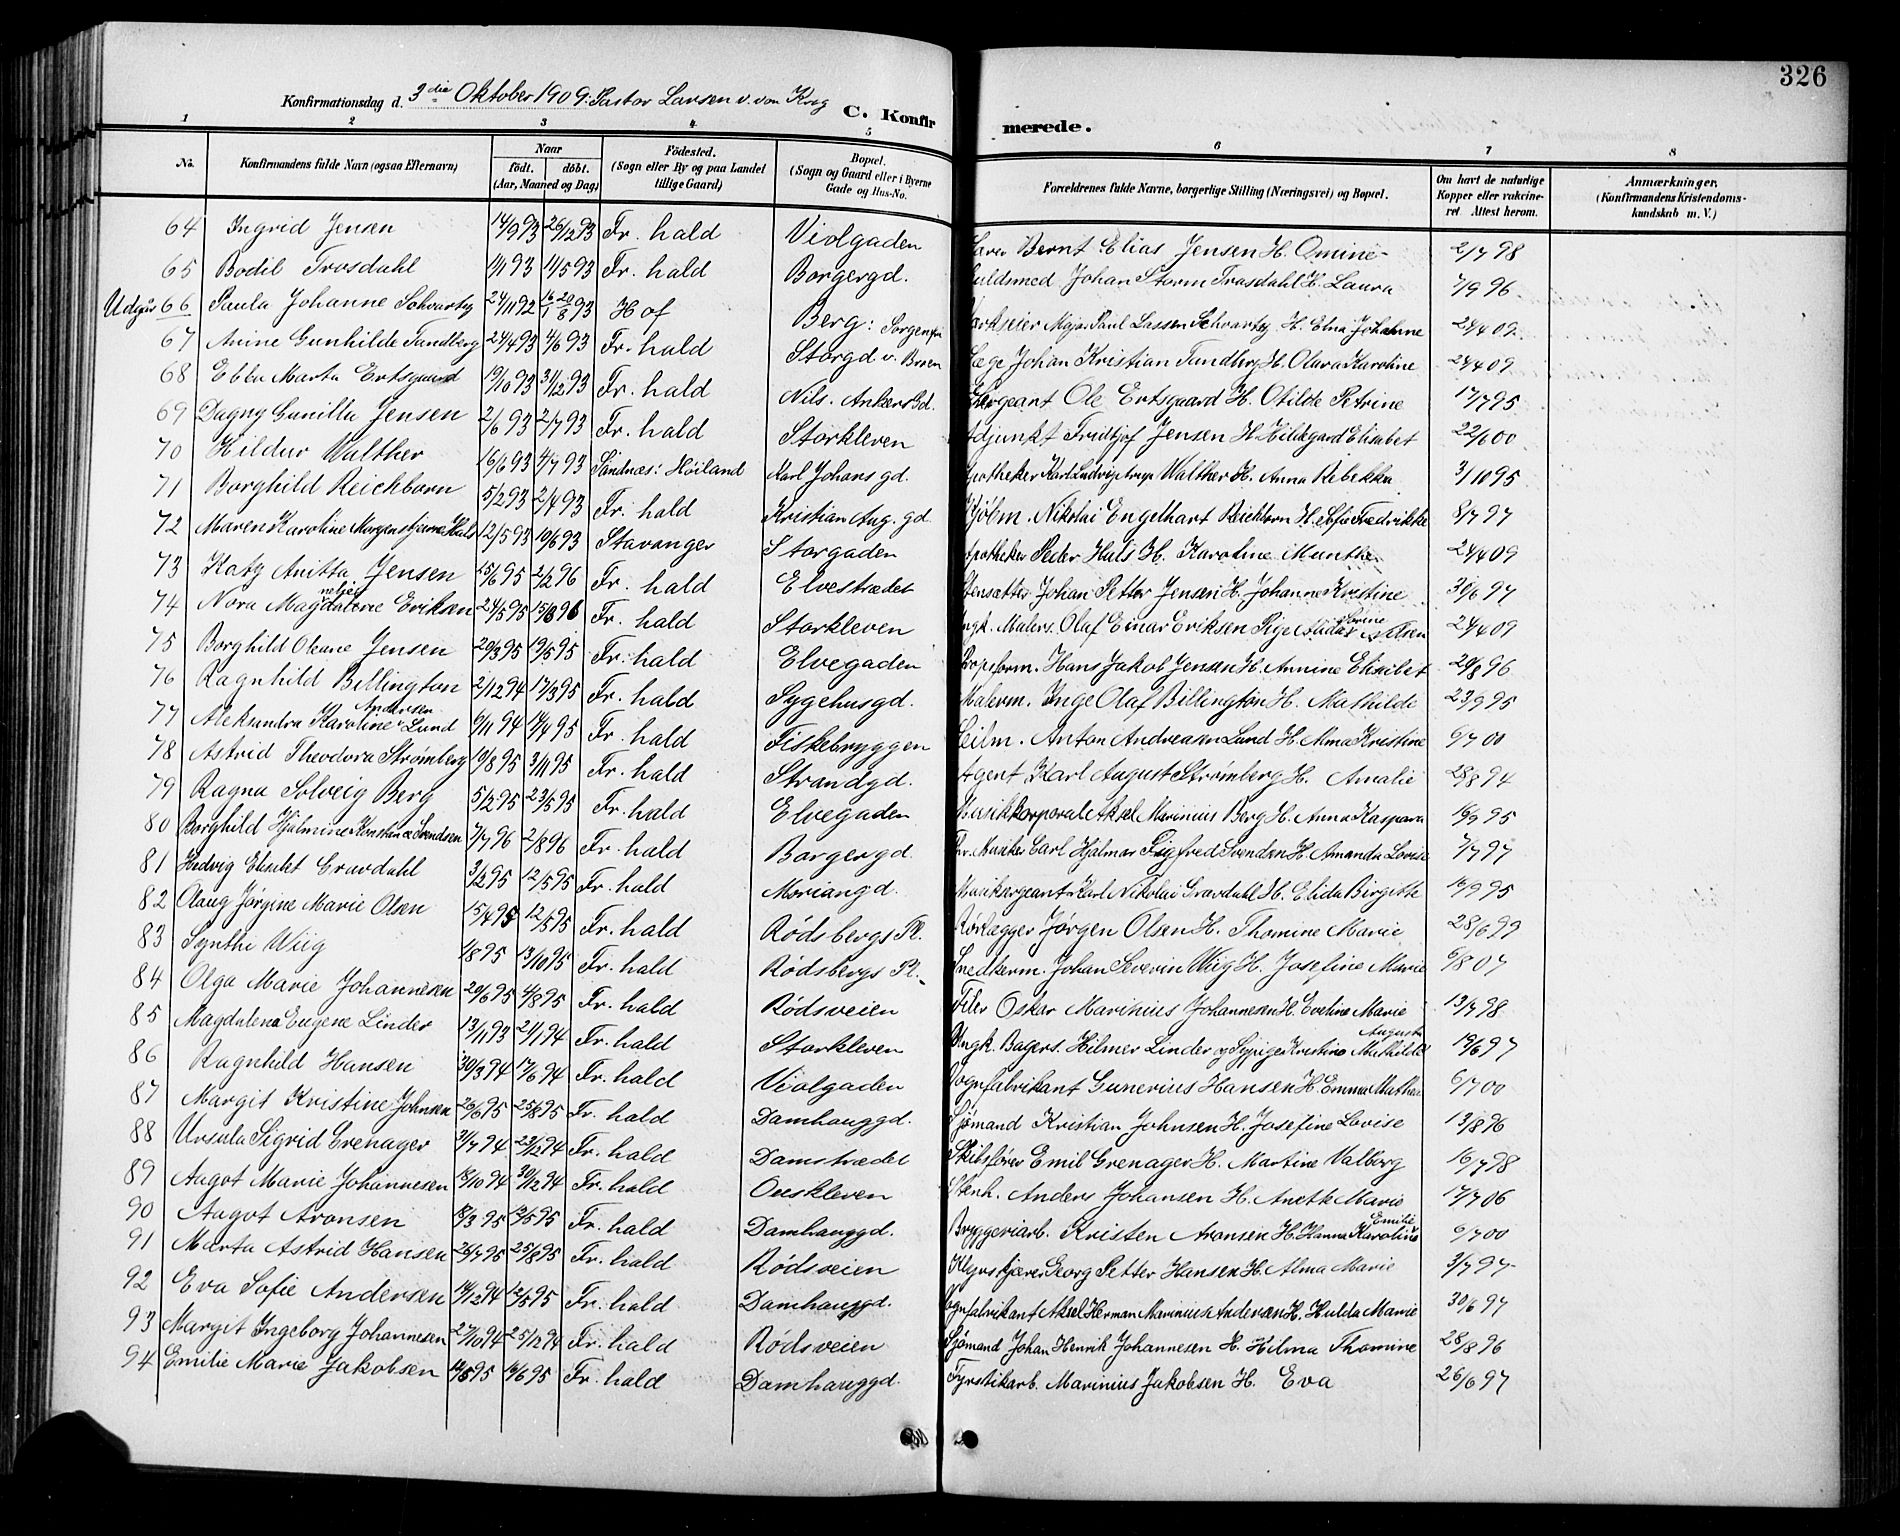 326
Konfirmationsdag d. 3die Oktober 1909. Pastor Larsen v. von Krog C. Konfirmerede.
1 2 3 4 5 6 7 8
No. Konfirmandens fulde Navn (ogsaa Efternavn) Naar født. døbt. (Aar, Maaned og Dag) Fødested. (Sogn eller By og paa Landet tillige Gaard) Bopæl. (Sogn og Gaard eller i Byerne Gade og Hus-No. Forældrenes fulde Navne, borgerlige Stilling (Næringsvei) og Bopæl. Om havt de naturlige Kopper eller vakcineret Attest herom. Anmærkninger. (Konfirmandens Kristendomskundskab m. V.)
64 Ingrid Jensen 14/9 93 26/12 93 Fr. hald Violgaden Bernt Elias Jensen H. Omine 2/7 98
65 Bodil Trosdahl 11/1 93 14/5 93 Fr. hald Borgergd. Guldsmed Johan Storm Trosdahl H. Laura 7/9 96
Udgår 66 Paula Johanne Schvartz 24/11 92 16/1 20/8 93 Hof Berg: Sorgenfri Major Paul Lassen Schvartz H. Elna Johanne 24/4 09
67 Anine Gunhilde Tandberg 24/4 93 4/6 93 Fr. hald Storgd v. Broen Læge Johan Kristian Tandberg H. Olava Karoline 24/4 09
68 Ebba Marta Ertsgaard 19/10 93 31/12 93 Fr. hald Nils. Ankersgd. Sergeant Ole Ertsgaard H. Otilde Petrine 17/7 95
69 Dagny Gunilla Jensen 2/6 93 2/7 93 Fr. hald Storkleven Adjunkt Fridtjof Jensen H. Hildegard Elisabet 22/6 00
70 Hildur Walther 16/6 93 4/7 93 Sandnæs: Høiland Karl Johans gd. Apotheker Karl Ludvig Walther H. Anna Rebekka 3/10 95
71 Borghild Reichborn 5/2 93 2/4 93 Fr. hald Kristian Aug. gd. Kjøbm. Nikolai Engelhart Reichborn H. Sofie Fredrikke 8/7 97
72 Maren Karoline Morgenstjerne Hals 12/5 93 10/6 93 Stavanger Storgaden Apotheker Peder Hals H. Karoline Munthe 24/4 09
73 Katy Anitta Jensen 25/6 95 2/2 96 Fr. hald Elvestrædet Stensætter Johan Petter Jensen H. Johanne Kristine 30/6 97
74 Nora Magdalene Eriksen 24/5 95 15/3 96 Fr. hald Storkleven Ungk. Malers. Olaf Einar Eriksen Pige Alida Sorine Nilsen 24/4 09
75 Borghild Oleane Jensen 20/3 95 19/5 95 Fr. hald Elvegaden Hans Jakob Jensen H. Annine Elisabet 20/8 96
76 Ragnhild Billington 2/12 94 17/3 95 Fr. hald Sygehusgd. Malerm. Inge Olaf Billington H. Mathilde 23/9 95
77 Aleksandra Karoline Andersen Lund 6/11 94 14/4 95 Fr. hald Fiskebryggen Seilm. Anton Andreasen Lund H. Alma Kristine 6/7 00
78 Astrid Theodora Strømberg 10/8 95 3/11 95 Fr. hald Strandgd. Agent Karl August Strømberg H. Amalie 28/8 94
79 Ragna Solveig Berg 5/2 95 23/5 95 Fr. hald Elvegaden Musikkorporal Aksel Marinius Berg H. Anna Kaspara 16/9 95
80 Borghild Hjalmine Konstance Svendsen 7/7 96 2/8 96 Fr. hald Borgergd Musiker Carl Hjalmar Sigfred Svendsen H. Amanda Lovise 7/7 97
81 Hedvig Elisabet Gravdahl 3/2 95 12/5 95 Fr. hald Moriangd. Musiksergeant Karl Nikolai Gravdahl H. Elida Birgitte 16/9 95
82 Olaug Jørgine Marie Olsen 15/4 95 12/5 95 Fr. hald Rødsbergs Pl. Rørlægger Jørgen Olsen H. Thomine Marie 28/6 99
83 Synthi Wiig 1/8 95 13/10 95 Fr. hald Rødsbergs Pl. Snedkerm. Johan Severin Wiig H. Josefine Marie 6/8 07
84 Olga Marie Johannesen 20/6 95 4/8 95 Fr. hald Rødsveien Filer Oskar Marinius Johannesen H. Eveline Marie 13/7 98
85 Magdalena Eugene Linder 13/11 93 21/1 94 Fr. hald Storkleven Ungk. Bagers. Hilmer Linder og Sypige Kristine Mathilde Augusta 19/6 97
86 Ragnhild Hansen 30/3 94 17/6 94 Fr. hald Violgaden Vognfabrikant Gunerius Hansen H. Emma 6/7 00
87 Margit Kristine Johnsen 26/6 95 25/8 95 Fr. hald Damhauggd. Sjømand Kristian Johnsen H. Josefine Lovise 13/8 96
88 Ursula Sigrid Grenager 31/7 94 23/12 94 Fr. hald Damstrædet Skibsfører Emil Grenager H. Martine Valborg 16/7 98
89 Aagot Marie Johannesen 18/10 94 30/12 94 Fr. hald Oueskleven Stenh. Anders Johansen H. Anette Marie 17/7 06
90 Aagot Aronsen 18/3 95 12/5 95 Fr. hald Damhauggd. Bryggeriarb. Kristen Aronsen H. Hanna Karoline Emilie 6/7 00
91 Marta Astrid Hansen 26/7 95 25/8 95 Fr. hald Rødsveien Georg Petter Hansen H. Alma Marie 3/7 97
92 Eva Sofie Andersen 14/12 94 12/5 95 Fr. hald Damhauggd. Vognfabrikant Aksel Herman Marinius Andersen H. Hulda Marie 30/6 97
93 Margit Ingeborg Johannesen 27/10 94 25/12 94 Fr. hald Rødsveien Sjømand Johan Henrik Johannesen H. Hilma Thomine 28/8 96
94 Emilie Marie Jakobsen 14/5 95 16/6 95 Fr. hald Damhauggd. Fyrstikarb. Marinius Jakobsen H. Eva 26/6 97